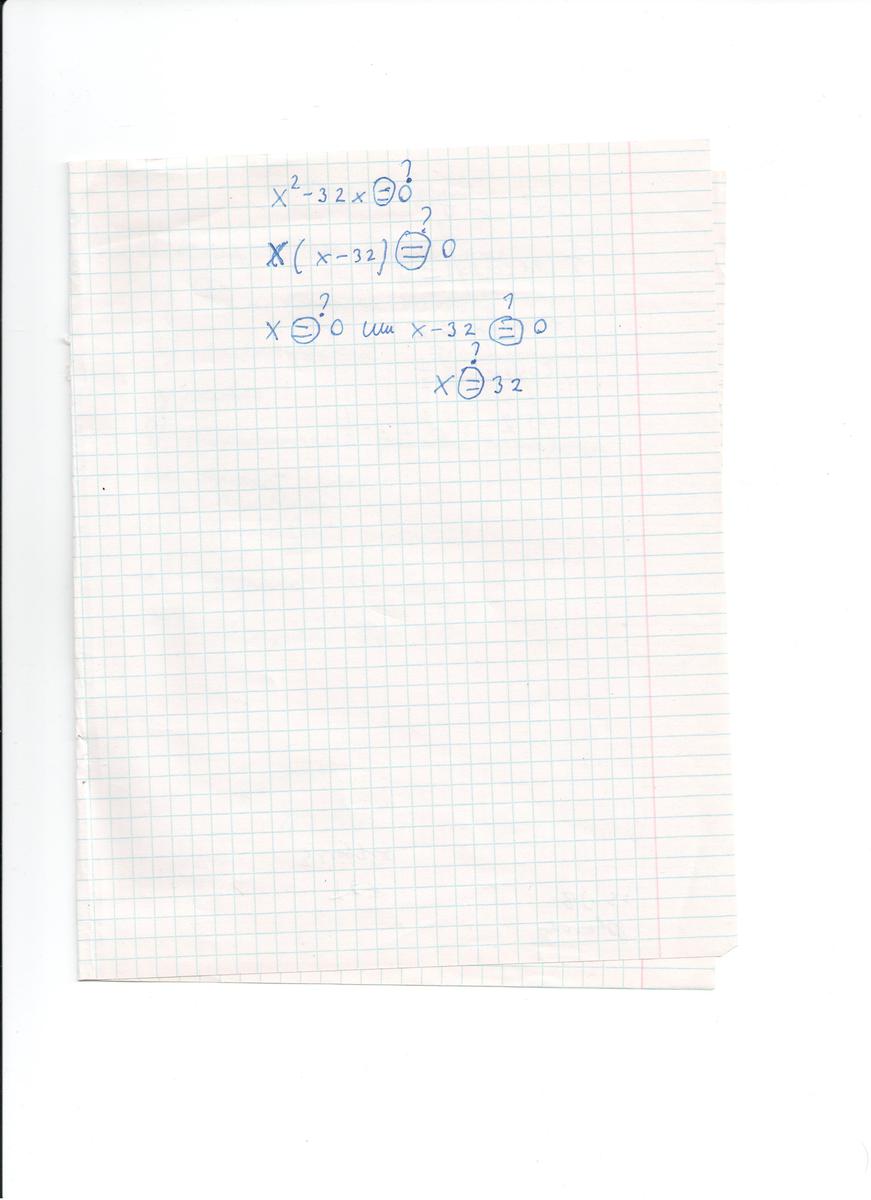 x² - 32x = 0 ?
x(x - 32) = 0 ?
x = 0 ? или x - 32 = 0 ?
x = 32 ?